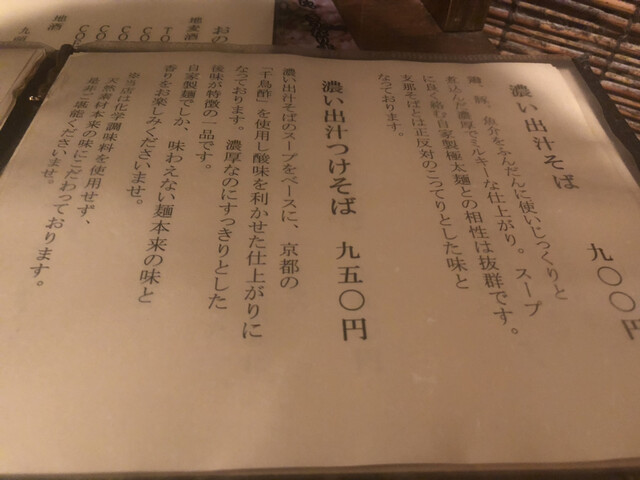 濃い出汁そば 九〇〇円
鶏、豚、魚介をふんだんに使いじっくりと
煮込んだ濃厚でミルキーな仕上がり。スープ
に良く絡む自家製極太麺との相性は抜群です。
支那そばとは正反対のこってりとした味と
なっております。
濃い出汁つけそば 九五〇円
濃い出汁そばのスープをベースに、京都の
「千鳥酢」を使用し酸味を利かせた仕上がりに
なっております。濃厚なのにすっきりとした
後味が特徴の一品です。
自家製麺でしか、味わえない麺本来の味と
香りをお楽しみくださいませ。
※当店は化学調味料を使用せず、
天然素材本来の味にこだわっております。
是非ご堪能くださいませ。
地麦酒
地酒